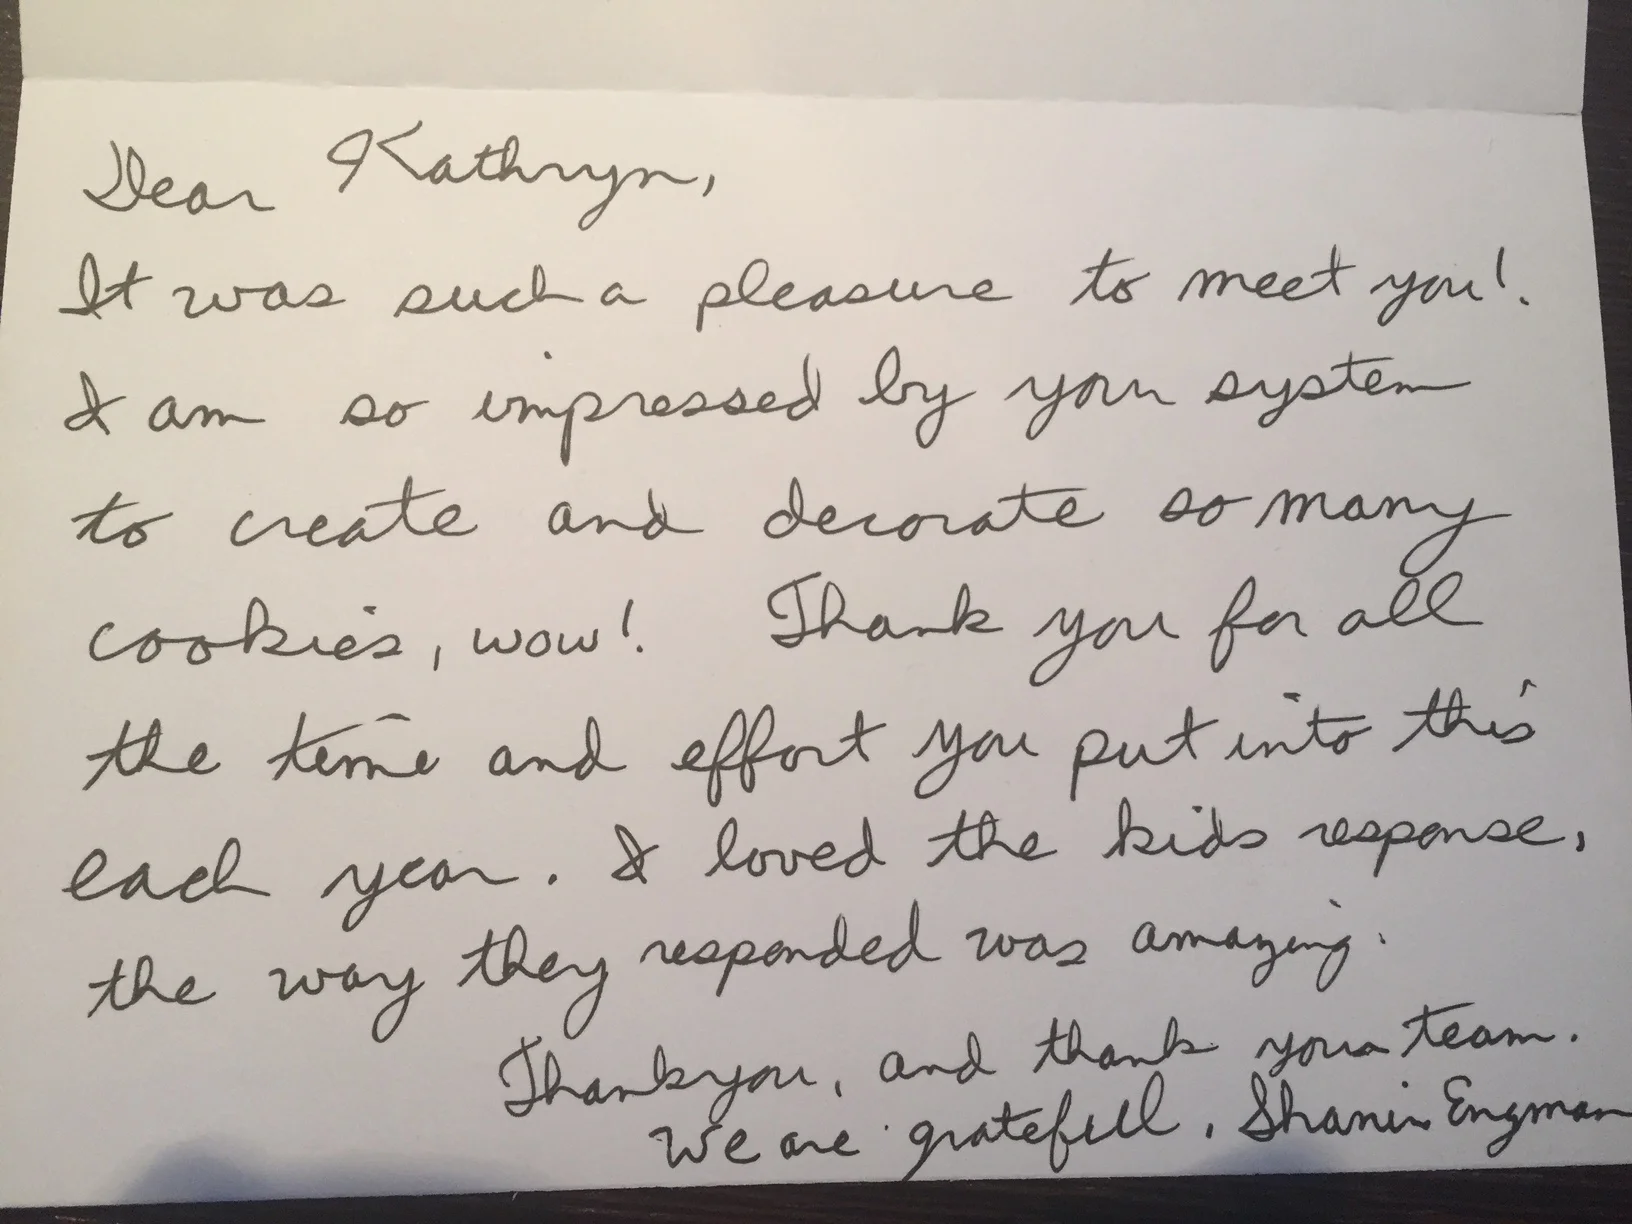 Dear Kathryn,
It was such a pleasure to meet you!.
I am so impressed by your system
to create and decorate so many
cookies, wow! Thank you for all
the time and effort you put into this
each year. I loved the kids response,
the way they responded was amazing.
Thank you, and thank your team.
We are grateful, Engman